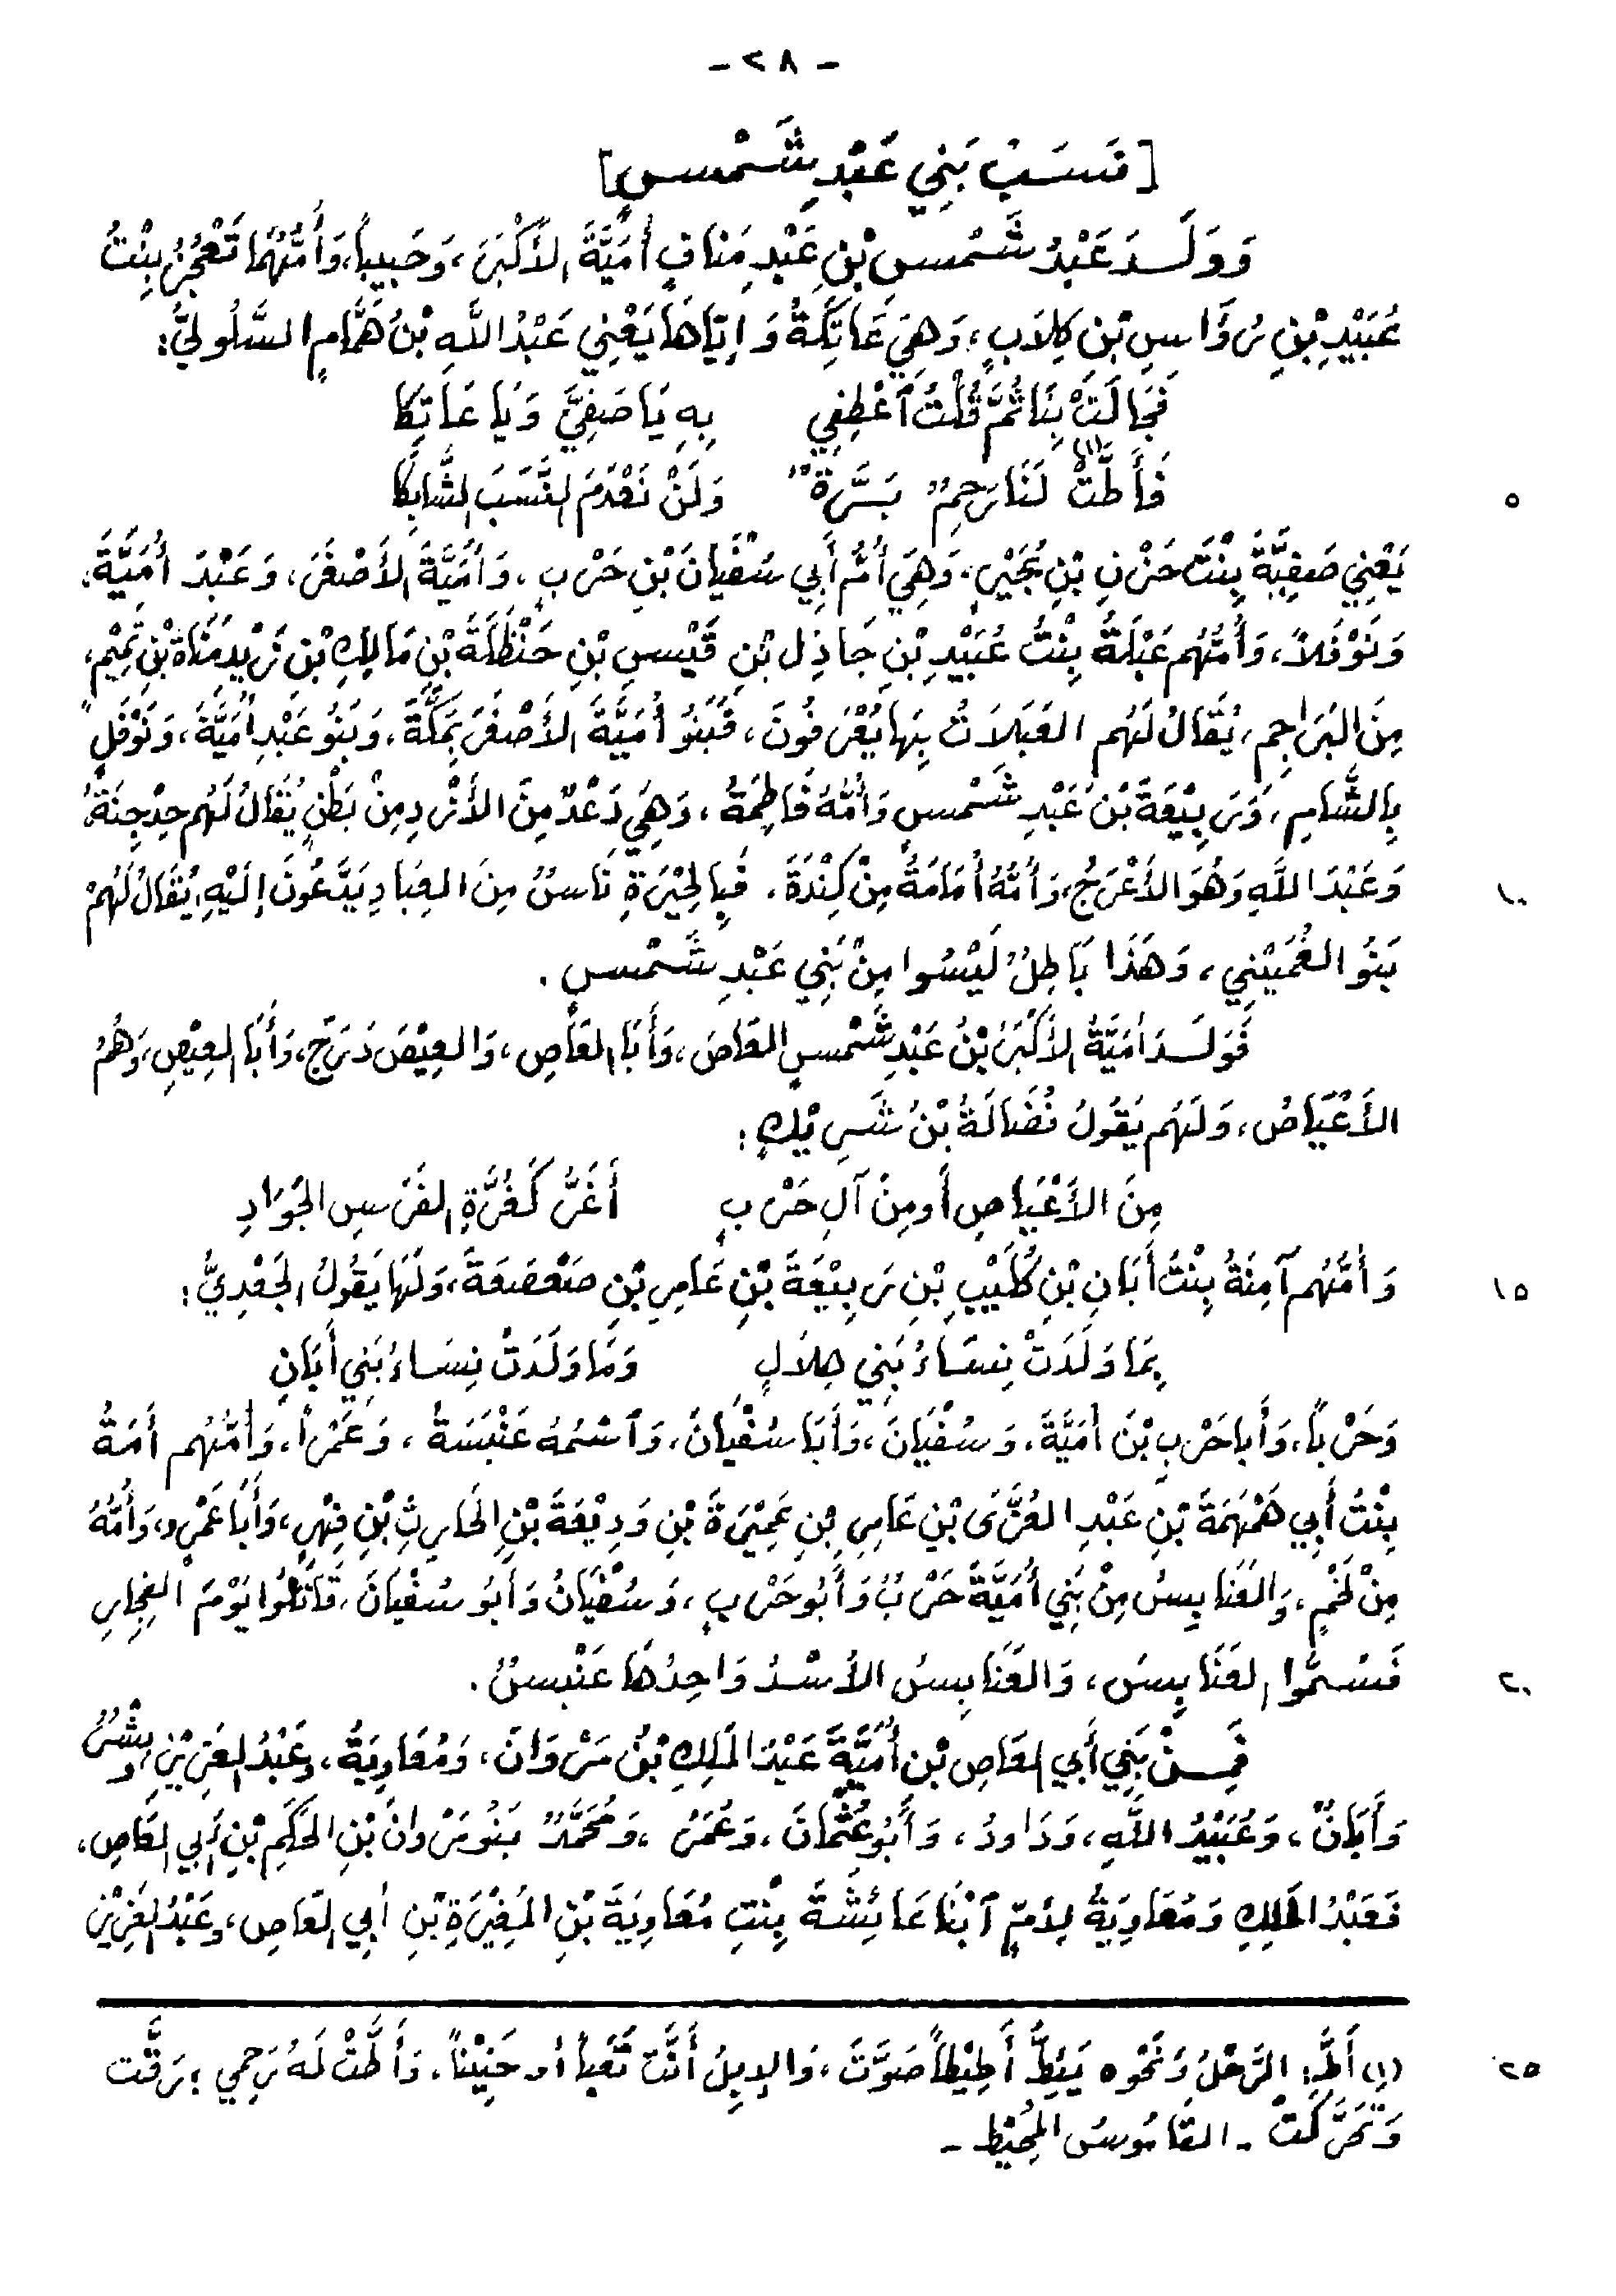 - ٢٨ -
[نَسَبُ بَنِي عَبْدِ شَمْسٍ]
وَوَلَدَ عَبْدُ شَمْسِ بْنِ عَبْدِ مَنَافٍ أُمَيَّةَ الأَكْبَرَ، وَحَبِيباً، وَأُمُّهُمَا تَعْجُزُ بِنْتُ
عُبَيْدِ بْنِ رُؤَاسِ بْنِ كِلَابٍ، وَهِيَ عَاتِكَةُ وَإِيَّاهَا يَعْنِي عَبْدُ اللَّهِ بْنُ هَمَّامٍ السَّلُولِيُّ:
فَجَالَتْ بِنَا ثُمَّ قُلْتُ ٱعْطِفِي بِهِ يَا صَفِيَّ وَيَا عَاتِكَا
فَأَطَّتْ (١) لَنَا رَحِمٌ بَرَّةٌ وَلَنْ نَعْدَمَ النَّسَبَ الشَّابِكَا
٥
يَعْنِي صَفِيَّةَ بِنْتَ حَزْنِ بْنِ بُجَيْرٍ، وَهِيَ أُمُّ أَبِي سُفْيَانَ بْنِ حَرْبٍ، وَأُمَيَّةَ الأَصْغَرَ، وَعَبْدَ أُمَيَّةَ،
وَنَوْفَلاً، وَأُمُّهُم عَبْلَةُ بِنْتُ عُبَيْدِ بْنِ جَاذِلِ بْنِ قَيْسِ بْنِ حَنْظَلَةَ بْنِ مَالِكِ بْنِ زَيْدِ مَنَاةَ بْنِ تَمِيْمٍ،
مِنَ البَرَاجِمِ، يُقَالُ لَهُم العَبَلَاتُ بِهَا يُعْرَفُونَ، فَبَنُو أُمَيَّةَ الأَصْغَرَ بِمَكَّةَ، وَبَنُو عَبْدِ أُمَيَّةَ، وَنَوْفَلٍ
بِالشَّامِ، وَرَبِيْعَةَ بْنَ عَبْدِ شَمْسٍ وَأُمُّهُ فَاطِمَةُ، وَهِيَ دَعْدٌ مِنَ الأَزْدِ مِنْ بَطْنٍ يُقَالُ لَهُم حِدْجِنَةُ،
وَعَبْدَ اللَّهِ وَهُوَ الأَعْرَجُ، وَأُمُّهُ أُمَامَةُ مِنْ كِنْدَةَ. فَبِالحِيْرَةِ نَاسٌ مِنَ العِبَادِ يَدَّعُونَ إِلَيْهِ، يُقَالُ لَهُمْ
١٠
بَنُو الغُمَيْنِي، وَهَذَا بَاطِلٌ لَيْسُوا مِنْ بَنِي عَبْدِ شَمْسٍ.
فَوَلَدَ أُمَيَّةُ الأَكْبَرُ بْنُ عَبْدِ شَمْسٍ العَاصَ، وَأَبَا العَاصِ، وَالعِيْصَ دَرَجَ، وَأَبَا العِيْصِ، وَهُمُ
الأَعْيَاصُ، وَلَهُم يَقُولُ فُضَالَةُ بْنُ شَرِيْكٍ:
مِنَ الأَعْيَاصِ أَو مِنَ آلِ حَرْبٍ أَغَرُّ كَغُرَّةِ الفَرَسِ الجَوَادِ
وَأُمُّهُم آمِنَةُ بِنْتُ أَبَانِ بْنِ كُلَيْبِ بْنِ رَبِيْعَةَ بْنِ عَامِرِ بْنِ صَعْصَعَةَ، وَلَهَا يَقُولُ الجَعْدِيُّ:
١٥
بِمَا وَلَدَتْ نِسَاءُ بَنِي هِلَالٍ وَمَا وَلَدَتْ نِسَاءُ بَنِي أَبَانِ
وَحَرْباً، وَأَبَا حَرْبِ بْنَ أُمَيَّةَ، وَسُفْيَانَ، وَأَبَا سُفْيَانَ، وَٱسْمُهُ عَنْبَسَةُ، وَعَمْراً، وَأُمُّهُم أَمَةُ
بِنْتُ أَبِي هَمْهَمَةَ بْنِ عَبْدِ العُزَّى بْنِ عَامِرِ بْنِ عَمِيْرَةَ بْنِ وَدِيْعَةَ بْنِ الحَارِثِ بْنِ فِهْرٍ، وَأَبَا عَمْرٍو، وَأُمُّهُ
مِنْ لَخْمٍ، وَالعَنَابِسُ مِنْ بَنِي أُمَيَّةَ حَرْبٌ وَأَبُو حَرْبٍ، وَسُفْيَانُ وَأَبُو سُفْيَانَ، قَاتَلُوا يَوْمَ الفِجَارِ
فَسُمُّوا العَنَابِسَ، وَالعَنَابِسُ الأُسْدُ وَاحِدُهَا عَنْبَسٌ.
٢٠
فَمِنْ بَنِي أَبِي العَاصِ بْنِ أُمَيَّةَ عَبْدُ المَلِكِ بْنُ مَرْوَانَ، وَمُعَاوِيَةُ، وَعَبْدُ العَزِيْزِ، وَبِشْرٌ
وَأَبَانٌ، وَعُبَيْدُ اللَّهِ، وَدَاودُ، وَأَبُو عُثْمَانَ، وَعُمَرُ، وَمُحَمَّدٌ بَنُو مَرْوَانَ بْنِ الحَكَمِ بْنِ أَبِي العَاصِ،
فَعَبْدُ المَلِكِ وَمُعَاوِيَةُ لِأُمٍّ ٱبْنَا عَائِشَةَ بِنْتِ مُعَاوِيَةَ بْنِ المُغِيْرَةِ بْنِ أَبِي العَاصِ، وَعَبْدُ العَزِيْزِ
(١) أَطَّ: الرَّحْلُ وَنَحْوه يَئِطُّ أَطِيْطاً صَوَّتَ، وَالإِبِلُ أَنَّت تَعَباً أو حَنِيْناً، وَأَطَّتْ لَهُ رَحِمِي؛ رَقَّت
٢٥
وَتَحَرَّكَتْ - القَامُوسُ المُحِيْط -